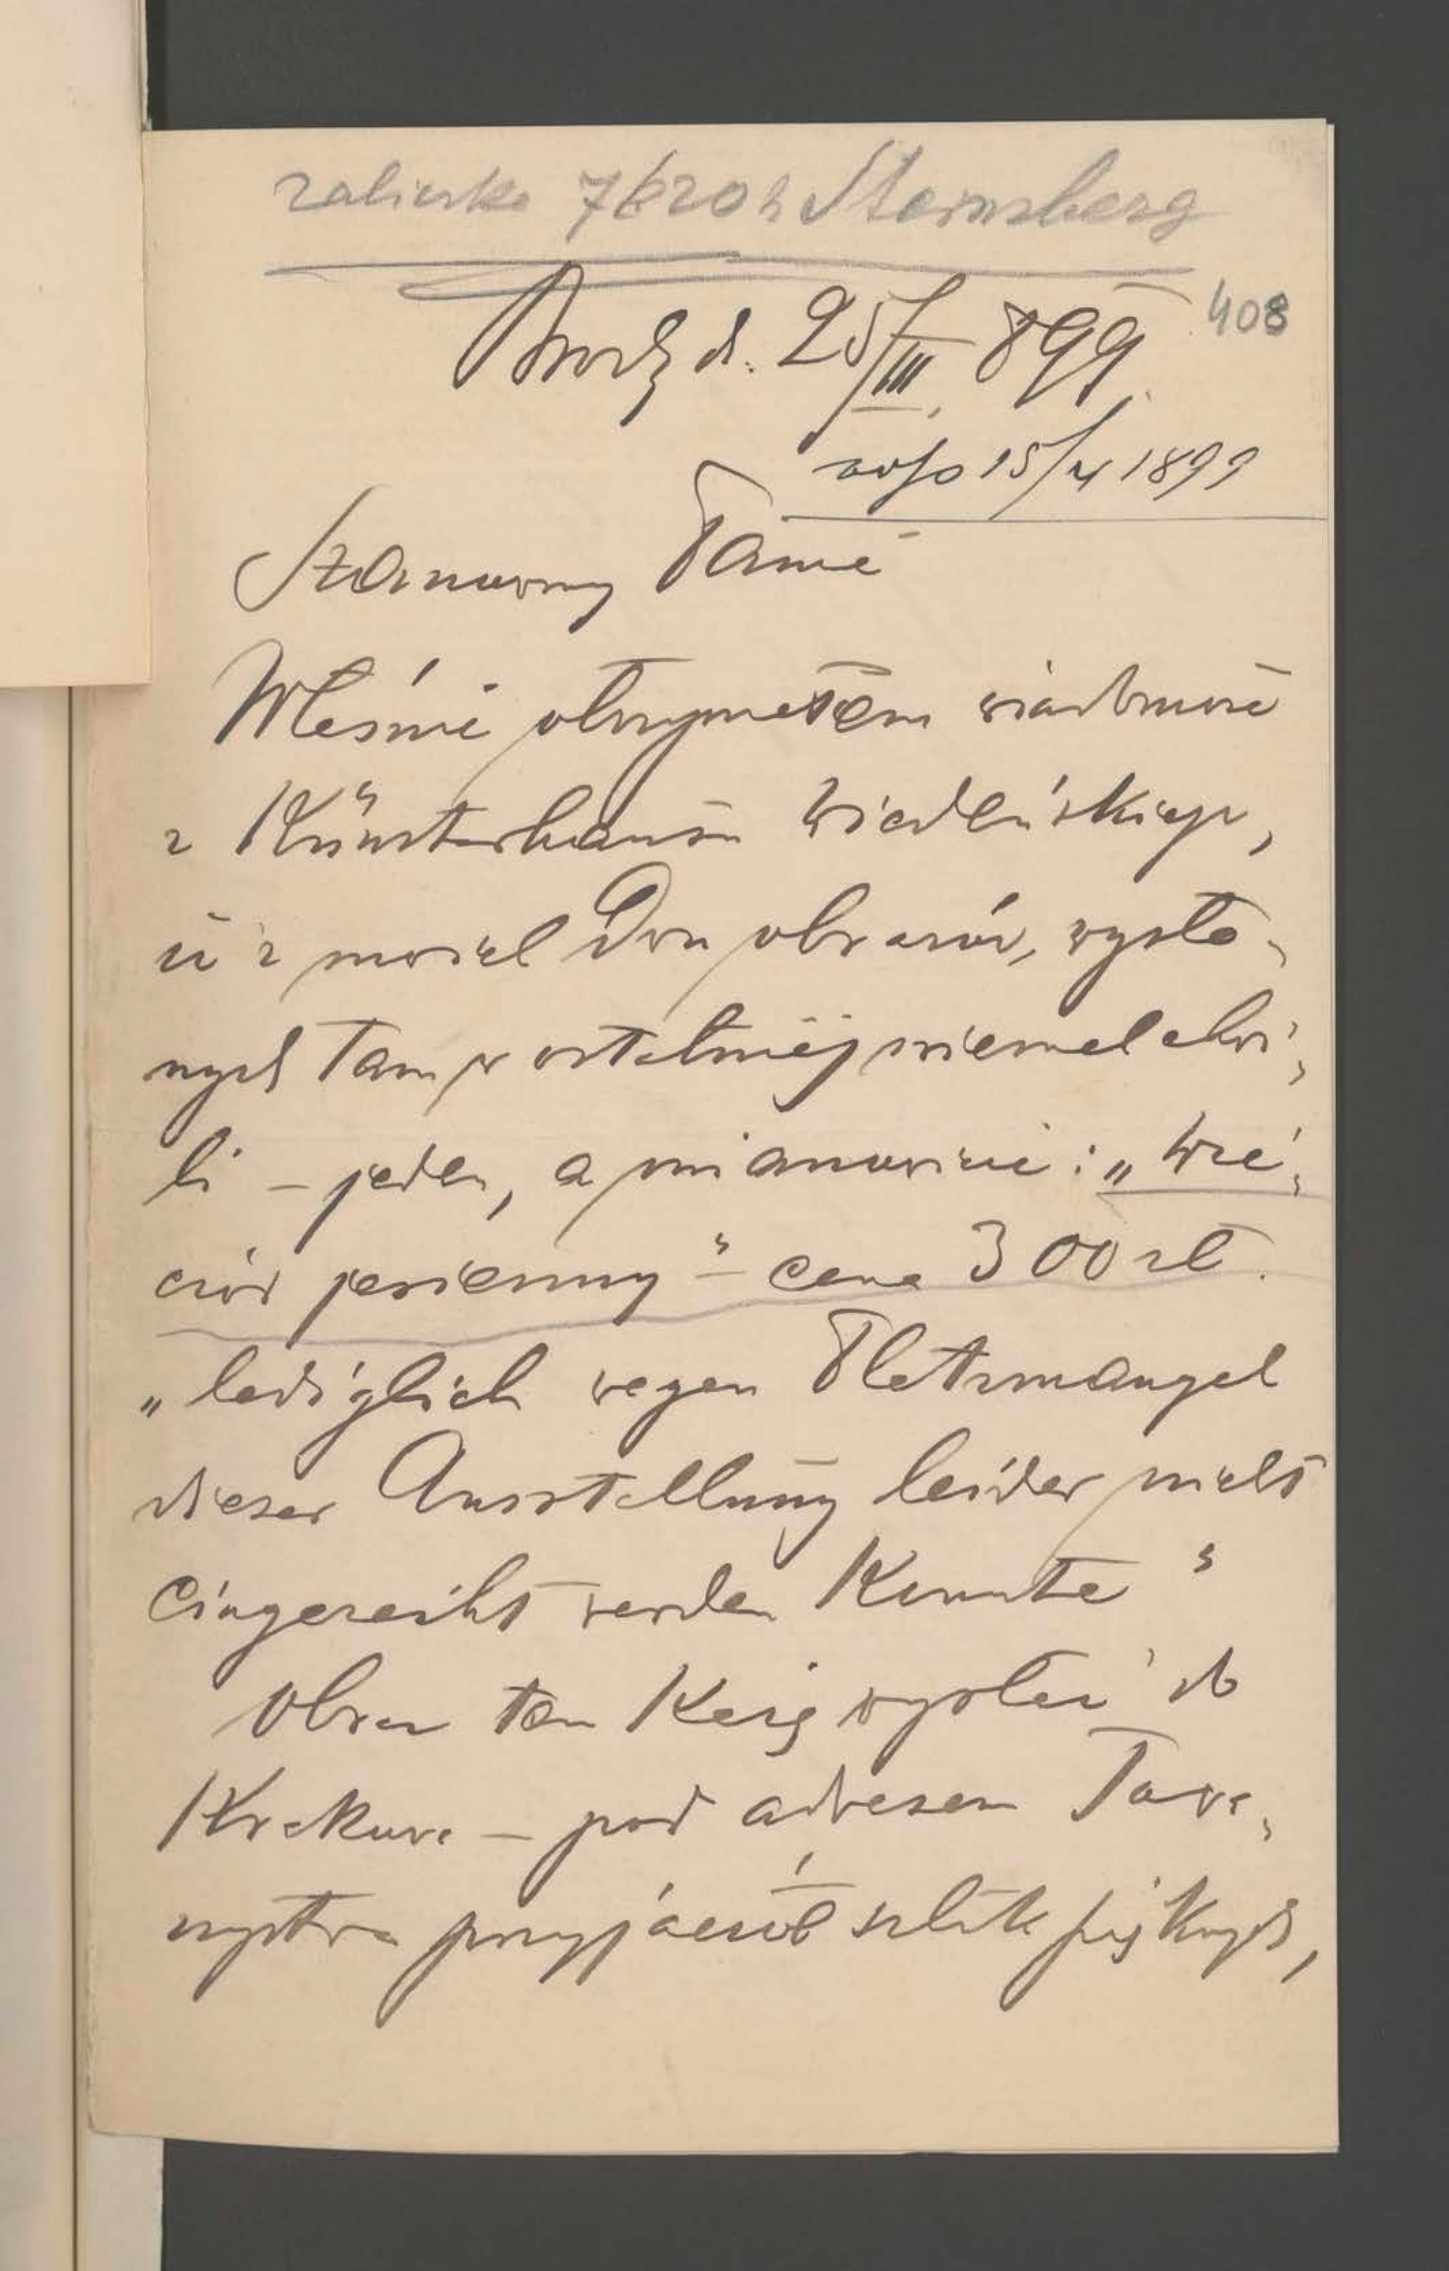 zaliczka 7 k 20 h Sternberg
Brody d. 25/III 899.
408
odp 15/4 1899
Szanowny Panie
Właśnie otrzymałem wiadomość
z Künstlerhausu wiedeńskiego,
iż z moich dwu obrazów, wysła-
nych tam w ostatniej niemal chwi-
li – jeden, a mianowicie: „Wie-
czór jesienny" – cena 300 zł.
„lediglich wegen Platzmangel
dieser Ausstellung leider nicht
eingereiht werden konnte"
Obraz ten każę wysłać do
Krakowa – pod adresem Towa-
rzystwa przyjaciół sztuk pięknych,